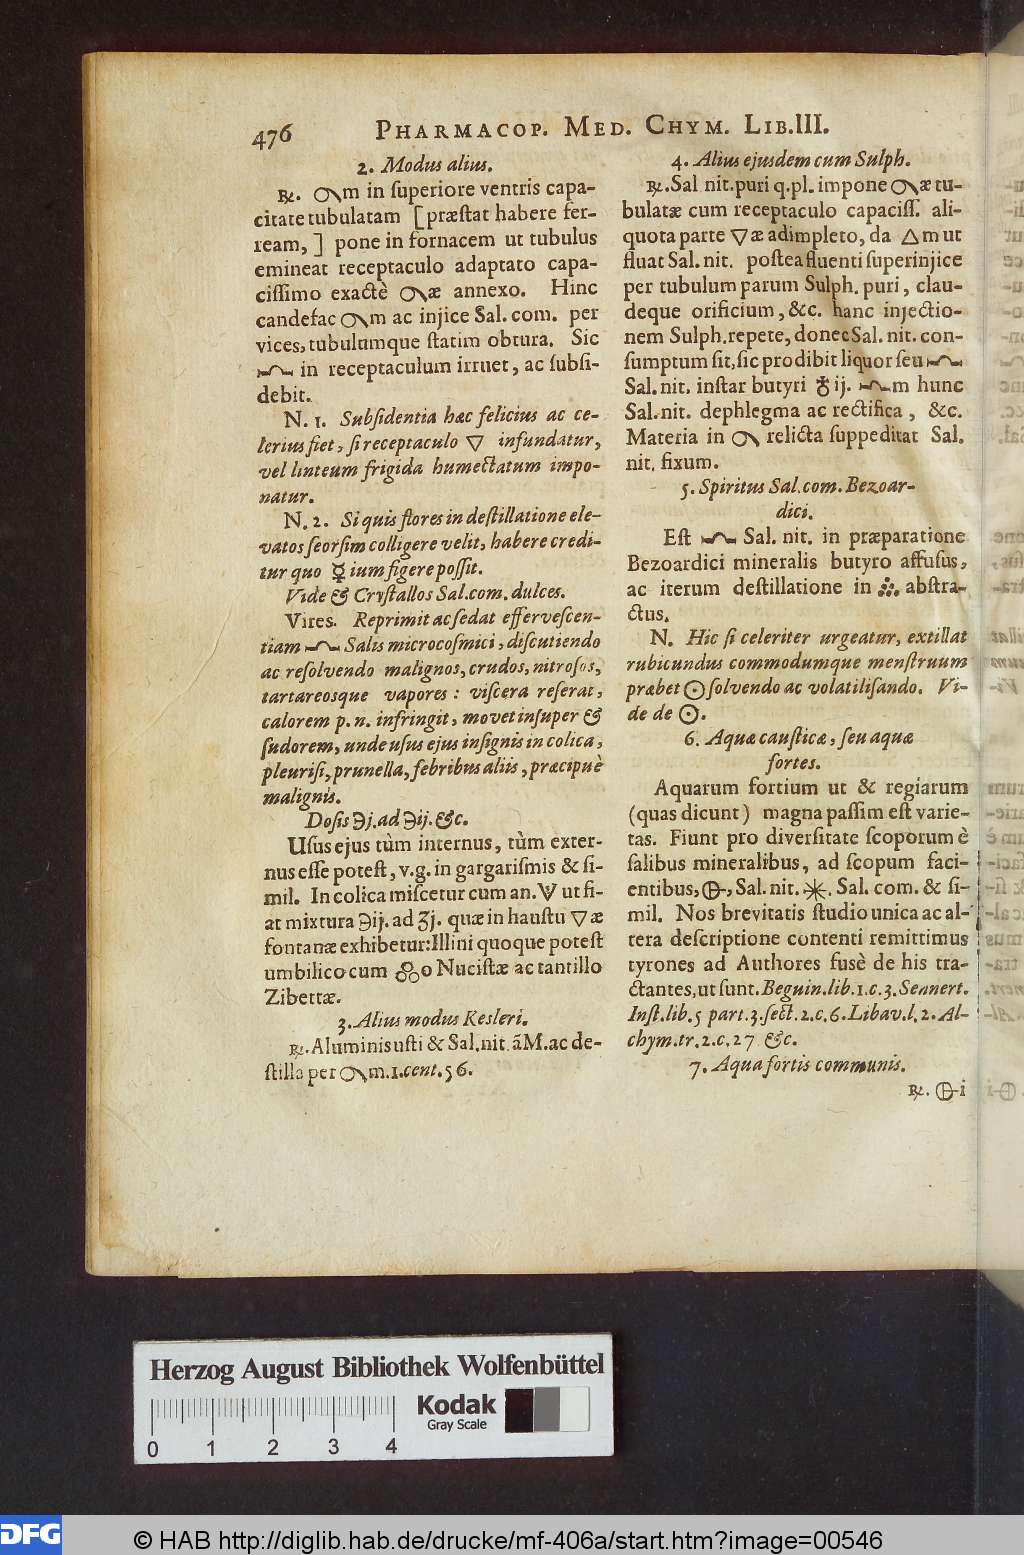 476 PHARMACOP. MED. CHYM. LIB.III.
2. Modus alius.
℞. m in ſuperiore ventris capa-
citate tubulatam [præſtat habere fer-
ream,] pone in fornacem ut tubulus
emineat receptaculo adaptato capa-
ciſſimo exactè æ annexo. Hinc
candefac m ac injice Sal. com. per
vices, tubulumque ſtatim obtura. Sic
in receptaculum irruet, ac ſubſi-
debit.
N. 1. Subſidentia hæc felicius ac ce-
lerius fiet, ſi receptaculo 🜄 infundatur,
vel linteum frigida humectatum impo-
natur.
N. 2. Si quis flores in deſtillatione ele-
vatos ſeorſim colligere velit, habere credi-
tur quo ☿ium figere poſſit.
Vide & Cryſtallos Sal. com. dulces.
Vires. Reprimit ac ſedat efferveſcen-
tiam Salis microcoſmici, diſcutiendo
ac reſolvendo malignos, crudos, nitroſos,
tartareosque vapores: viſcera reſerat,
calorem p. n. infringit, movet inſuper &
ſudorem, unde uſus ejus inſignis in colica,
pleuriſi, prunella, febribus aliis, præcipuè
malignis.
Doſis ℈j. ad ℈ij. &c.
Uſus ejus tùm internus, tùm exter-
nus eſſe poteſt, v.g. in gargariſmis & ſi-
mil. In colica miſcetur cum an. ut fi-
at mixtura ℈ij. ad ʒj. quæ in hauſtu 🜄æ
fontanæ exhibetur: Illini quoque poteſt
umbilico cum o Nuciſtæ ac tantillo
Zibettæ.
3. Alius modus Kesleri.
℞. Aluminis uſti & Sal. nit. ãM. ac de-
ſtilla per m. 1. cent. 56.
4. Alius ejusdem cum Sulph.
℞. Sal nit. puri q. pl. impone æ tu-
bulatæ cum receptaculo capaciſſ. ali-
quota parte 🜄æ adimpleto, da 🜂m ut
fluat Sal. nit. poſtea fluenti ſuperinjice
per tubulum parum Sulph. puri, clau-
deque orificium, &c. hanc injectio-
nem Sulph. repete, donec Sal. nit. con-
ſumptum ſit, ſic prodibit liquor ſeu
Sal. nit. inſtar butyri ♁ ij. m hunc
Sal. nit. dephlegma ac rectifica, &c.
Materia in relicta ſuppeditat Sal.
nit. fixum.
5. Spiritus Sal. com. Bezoar-
dici.
Eſt Sal. nit. in præparatione
Bezoardici mineralis butyro affuſus,
ac iterum deſtillatione in abſtra-
ctus.
N. Hic ſi celeriter urgeatur, extillat
rubicundus commodumque menſtruum
præbet ☉ ſolvendo ac volatiliſando. Vi-
de de ☉.
6. Aquæ cauſticæ, ſeu aquæ
fortes.
Aquarum fortium ut & regiarum
(quas dicunt) magna paſſim eſt varie-
tas. Fiunt pro diverſitate ſcoporum è
ſalibus mineralibus, ad ſcopum faci-
entibus, 🜖, Sal. nit. ✳. Sal. com. & ſi-
mil. Nos brevitatis ſtudio unica ac al-
tera deſcriptione contenti remittimus
tyrones ad Authores fusè de his tra-
ctantes, ut ſunt. Beguin. lib. 1. c. 3. Sennert.
Inſt. lib. 5 part. 3. ſect. 2. c. 6. Libav. l. 2. Al-
chym. tr. 2. c. 27 &c.
7. Aqua fortis communis.
℞. 🜖i
Herzog August Bibliothek Wolfenbüttel
0 1 2 3 4
Kodak
Gray Scale
DFG © HAB http://diglib.hab.de/drucke/mf-406a/start.htm?image=00546